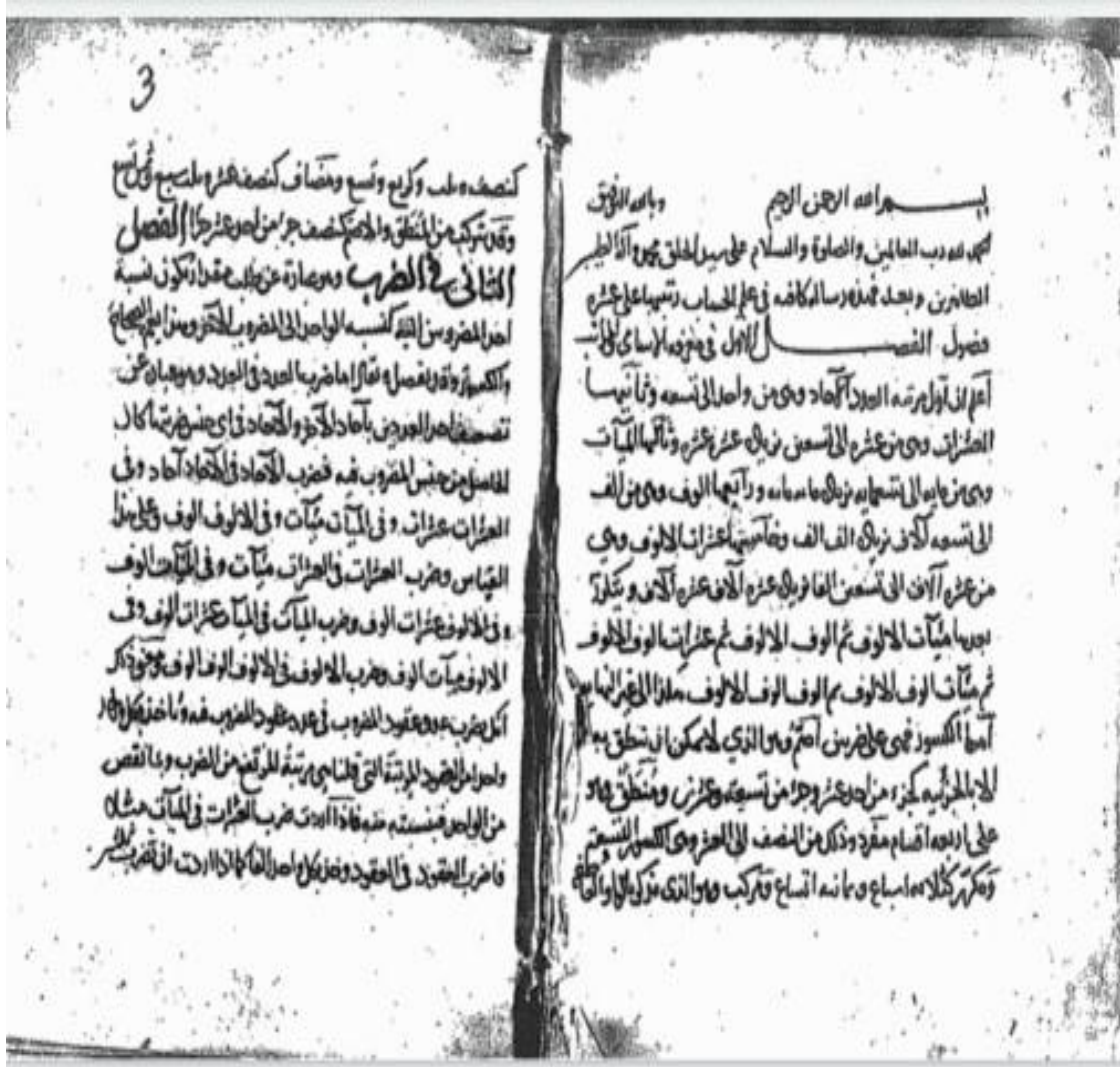 بسم الله الرحمن الرحيم وبالله التوفيق
الحمد لله رب العالمين والصلوة والسلام على سيد الخلق محمد وآله الطيبين
الطاهرين وبعد فهذه رسالة كافية في علم الحساب رتبتها على عشرة
فصول الفصل الاول في معرفة الاسامي والمراتب
أعلم ان أول مرتبة العدد الآحاد وهى من واحد الى تسعة وثانيها
العشرات وهى من عشرة الى تسعين بزيادة عشرة عشرة وثالثها الميآت
وهى من مايه الى تسعمايه بزيادة مايه مايه ورابعها الوف وهى من الف
الى تسعة آلاف بزيادة الف الف وخامسها عشرات الالوف وهي
من عشرة آلاف الى تسعين الفا بزيادة عشرة آلاف عشرة آلاف
بعدها ميآت الالوف ثم الوف الالوف ثم عشرات الوف الالوف
ثم ميآت الوف الالوف ثم الوف الوف الالوف هكذا الى غير النهايه
أما الكسور فهى على ضربين أصم وهو الذي لا يمكن ان ينطق به
الا بالجزئيه كجزء من احد عشر وجزء من تسعة وعشرين ومنطق وهو
على اربعه اقسام مفرد وذلك من النصف الى العشر وهى الكسور التسعة
ومكرر كثلاثه اسباع وثمانيه اتساع ومركب وهو الذى تركب بالواو العاطفة
3
كنصف وثلث وكربع وتسع ومضاف كنصف عشر وثلث سبع وثمن تسع
وقد تركب من المنطق والاصم كنصف جزء من احد عشر جزءا الفصل
الثانى في الضرب وهو عبارة عن طلب مقدار تكون نسبة
احد المضروبين اليه كنسبه الواحد الى المضروب الآخر وهذا يعم الصحاح
والكسور وقد نفصل ونقال اما ضرب العدد فى العدد وهو عبارة عن
تضعيف احد العددين بآحاد الآخر والآحاد فى اى جنس ضربتها كان
الحاصل من جنس المضروب فيه فضرب الآحاد فى الآحاد آحاد وفى
العشرات عشرات وفى الميآت ميآت وفى الالوف الوف وعلى هذا
القياس وضرب العشرات فى العشرات ميآت وفى الميآت الوف
وفى الالوف عشرات الوف وضرب الميآت فى الميآت عشرات الوف وفى
الالوف ميآت الوف وضرب الالوف فى الالوف الوف الوف ذكر
عدد عقود المضروب فى عدد عقود المضروب فيه وتاخذ بكل
واحد من العقود المرتبة التى قلنا هى مرتبة المرتفع من الضرب وما نقص
من الواحد فبنسبته منه فاذا اردت ضرب العشرات فى الميآت مثلا
فاضرب العقود فى العقود وخذ بكل واحد الفا كما اذا اردت ان تضرب